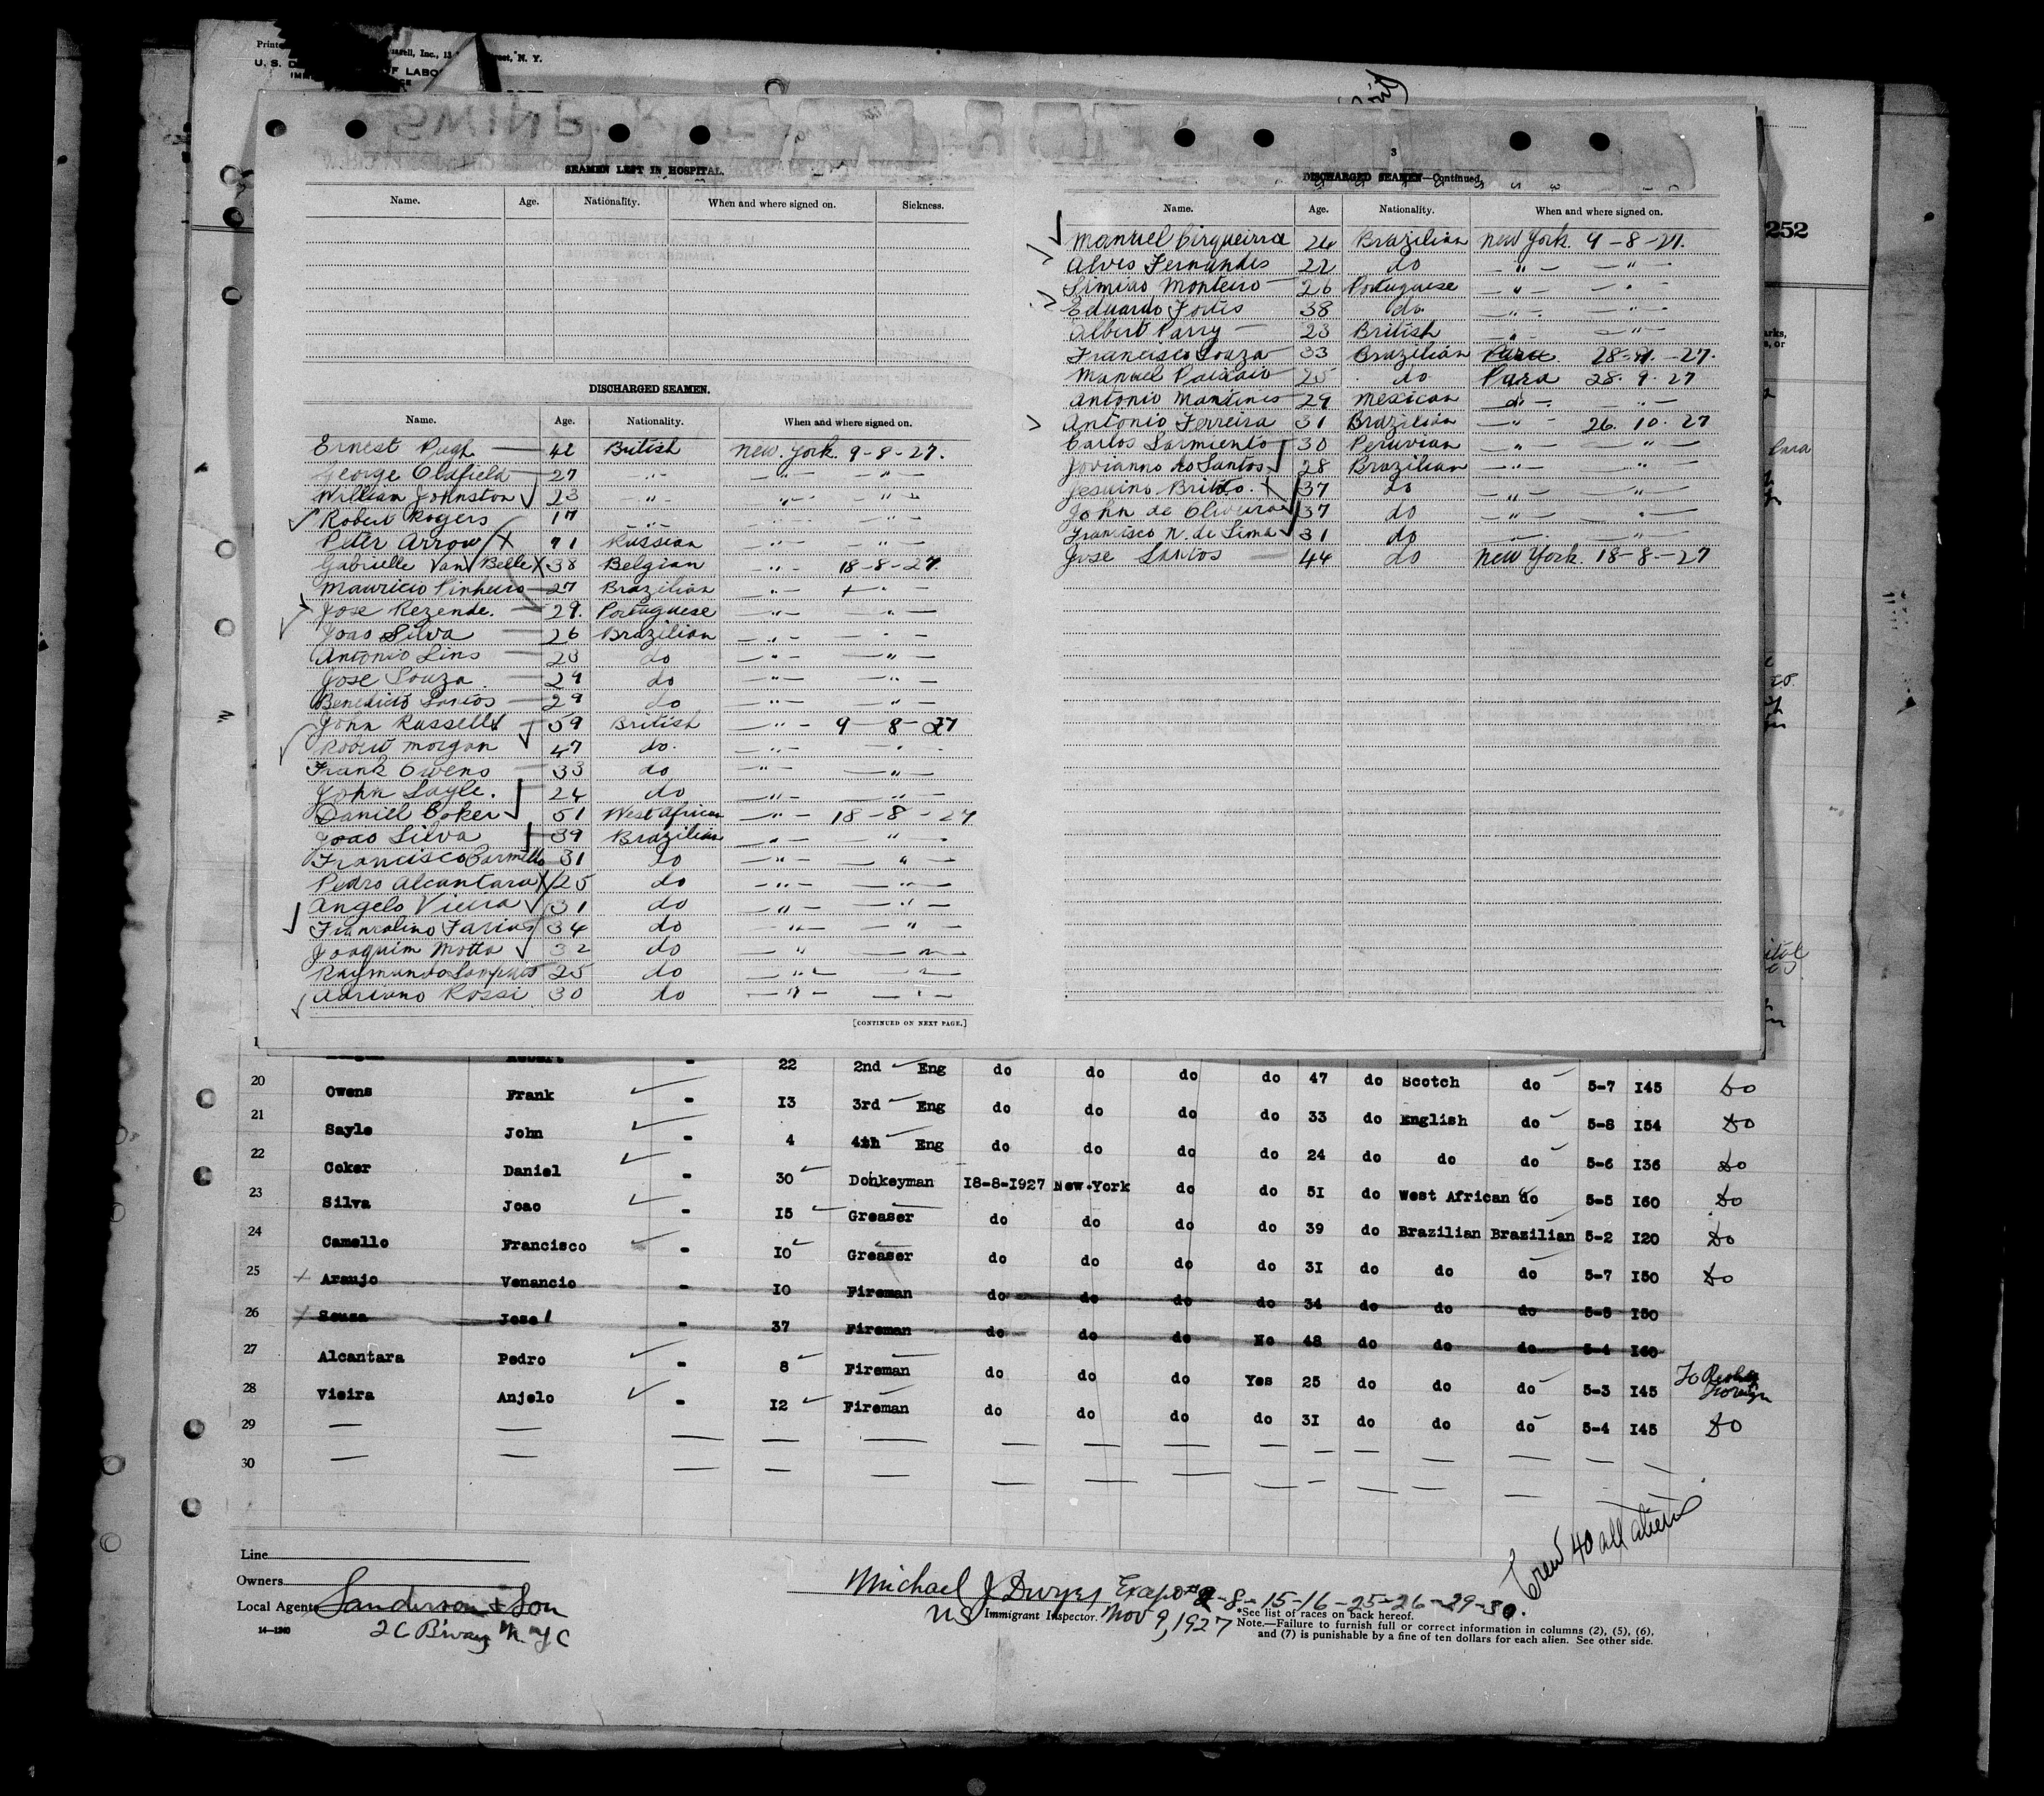 U. S. D F LABO
SEAMEN LEFT IN HOSPITAL.
Name. Age. Nationality. When and where signed on. Sickness.
DISCHARGED SEAMEN.
Name. Age. Nationality. When and where signed on.
Ernest Pugh 42 British New York 9-8-27.
George Oldfield 27 -"- -"- -"-
William Johnston 23 -"- -"- -"-
Robert Rogers 17 -"- -"- -"-
Peter Arrow X 41 Russian -"- -"-
Gabrielle Van Belle X 38 Belgian -"- 18-8-27
Mauricio Pinheiro 27 Brazilian -"- -"-
Jose Rezende. 29. Portuguese -"- -"-
Joao Silva 26 Brazilian -"- -"-
Antonio Lins 23 do -"- -"-
Jose Souza 29 do -"- -"-
Benedicto Santos 29 do -"- -"-
John Russell 59 British -"- 9-8-27
Robert Morgan 47 do. -"- -"-
Frank Owens 33 do -"- -"-
John Sayle. 24 do -"- -"-
Daniel Coker 51 West African -"- 18-8-27
Joao Silva 39 Brazilian -"- -"-
Francisco Carmello 31 do -"- -"-
Pedro Alcantara X 25 do -"- -"-
Angelo Vieira 31 do -"- -"-
Farias 34 do -"- -"-
Joaquim Motta 32 do -"- -"-
Raymundo 25 do -"- -"-
Adriano Rossi 30 do -"- -"-
[CONTINUED ON NEXT PAGE.]
3
DISCHARGED SEAMEN—Continued.
Name. Age. Nationality. When and where signed on.
Manuel 24 Brazilian New York. 9-8-27.
Alves Fernandes 22 do -"- -"-
Monteiro 26 Portuguese -"- -"-
Eduardo Fortes 38 do. -"- -"-
Albert Parry 23 British -"- -"-
Francisco Souza 33 Brazilian Para 28-9-27.
Manuel 25 do Para 28.9.27
Antonio Martines 29 Mexican do -"-
Antonio Ferreira 31 Brazilian -"- 26.10.27
Carlos Sarmiento 30 Peruvian -"- -"-
Jovianno do Santos 28 Brazilian -"- -"-
Jesuino Britto. X 37 do -"- -"-
John de Oliveira 37 do -"- -"-
Francisco N. de Lima 31 do -"- -"-
Jose Santos 44 do New York. 18-8-27
252
22 2nd Eng do do do do 47 do Scotch do 5-7 I45 Do
20 Owens Frank - I3 3rd Eng do do do do 33 do English do 5-8 I54 Do
21 Sayle John - 4 4th Eng do do do do 24 do do do 5-6 I36 Do
22 Coker Daniel - 30 Donkeyman I8-8-I927 New-York do do 5I do West African do 5-5 I60 Do
23 Silva Joao - I5 Greaser do do do do 39 do Brazilian Brazilian 5-2 I20 Do
24 Camello Francisco - I0 Greaser do do do do 3I do do do 5-7 I50 Do
25 Araujo Venancio - I0 Fireman do do do do 34 do do do 5-5 I50
26 Souza Jose - 37 Fireman do do do No 48 do do do 5-4 I60
27 Alcantara Pedro - 8 Fireman do do do Yes 25 do do do 5-3 I45 To Reship Foreign
28 Vieira Anjelo - I2 Fireman do do do do 3I do do do 5-4 I45 Do
29
30
Crew 40 all aliens
Line
Owners
Local Agents Sanderson & Son
14—1240
Michael J Dwyer Except 8-15-16-25-26-29-30.
US Immigrant Inspector. Nov 9, 1927
*See list of races on back hereof.
Note.—Failure to furnish full or correct information in columns (2), (5), (6),
and (7) is punishable by a fine of ten dollars for each alien. See other side.